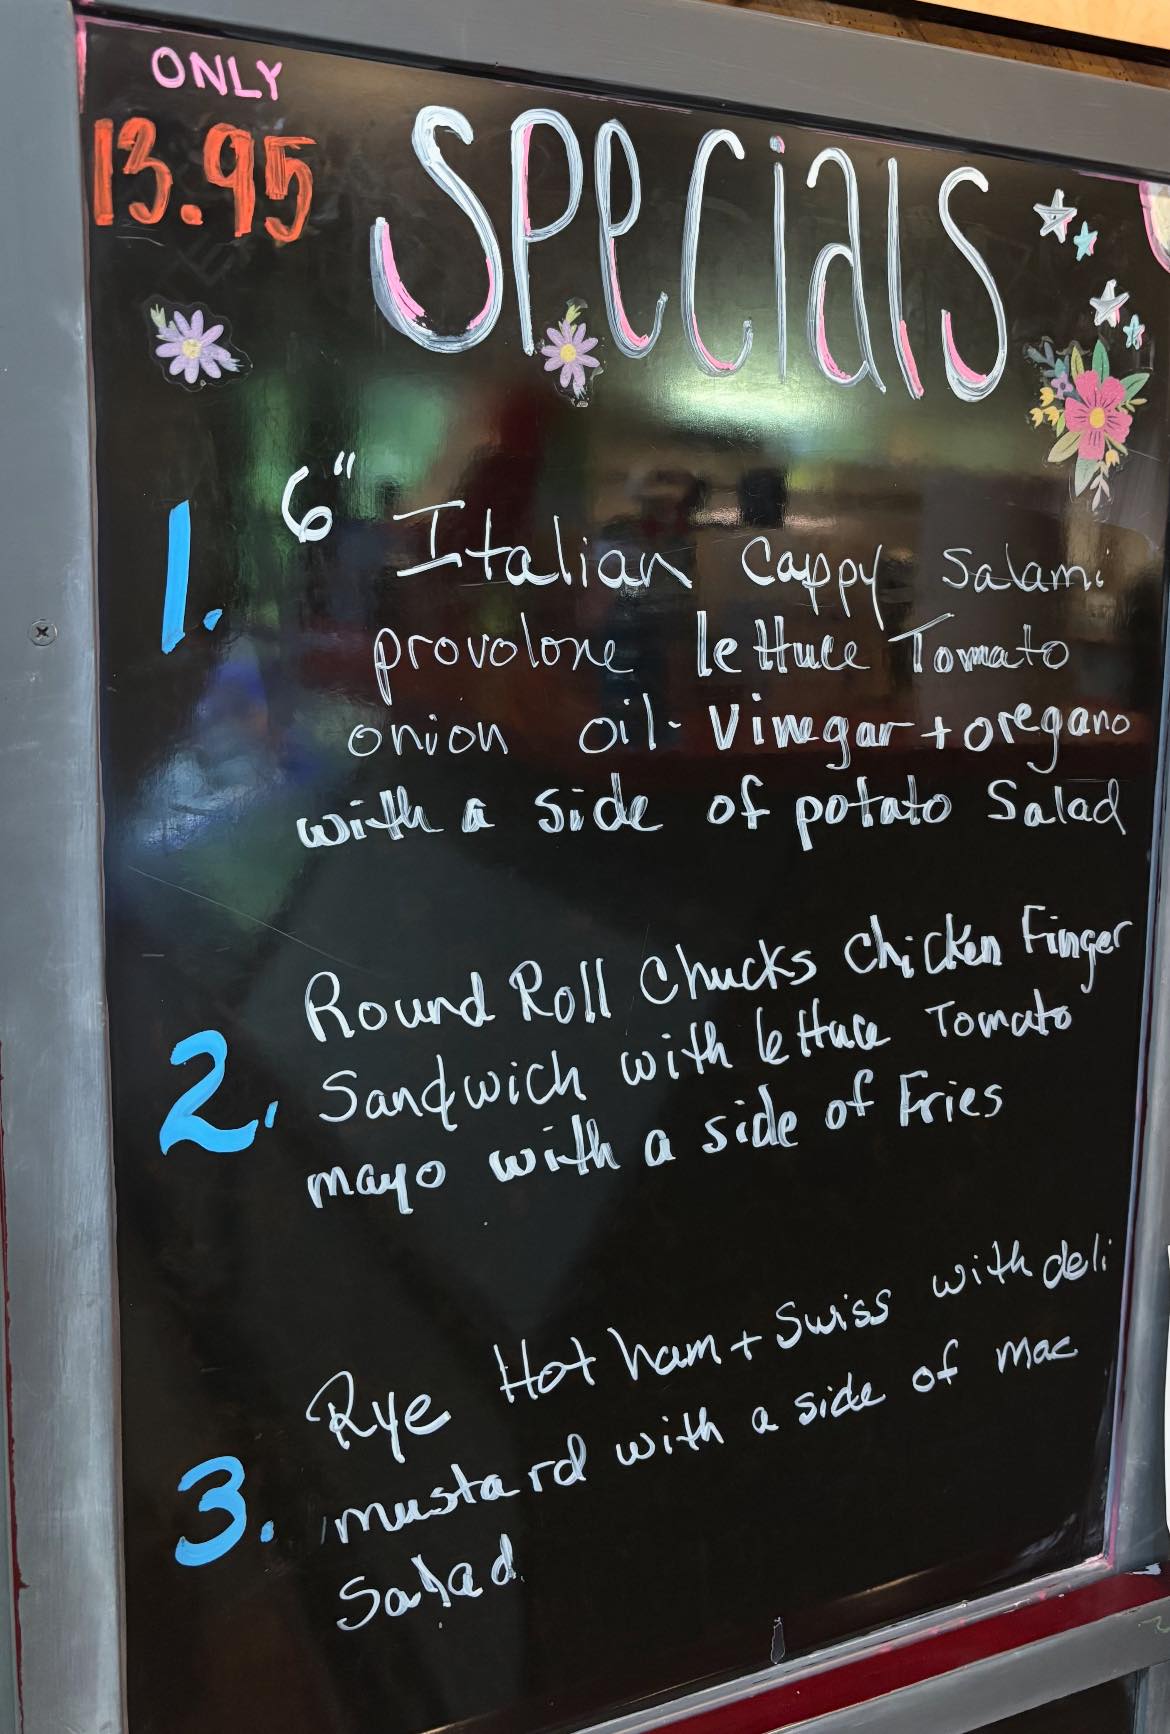 ONLY
13.95
Specials
1. 6" Italian Cappy Salami
provolone lettuce Tomato
onion oil - Vinegar + oregano
with a side of potato Salad
2. Round Roll Chucks Chicken Finger
Sandwich with lettuce Tomato
mayo with a side of Fries
3. Rye Hot ham + Swiss with deli
mustard with a side of mac
Salad